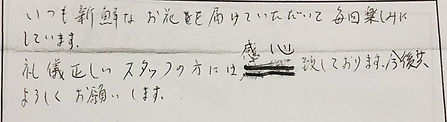 いつも新鮮なお花を届けていただいて毎回楽しみに
しています.
礼儀正しいスタッフの方には感心致しております.今後共
よろしくお願いします.